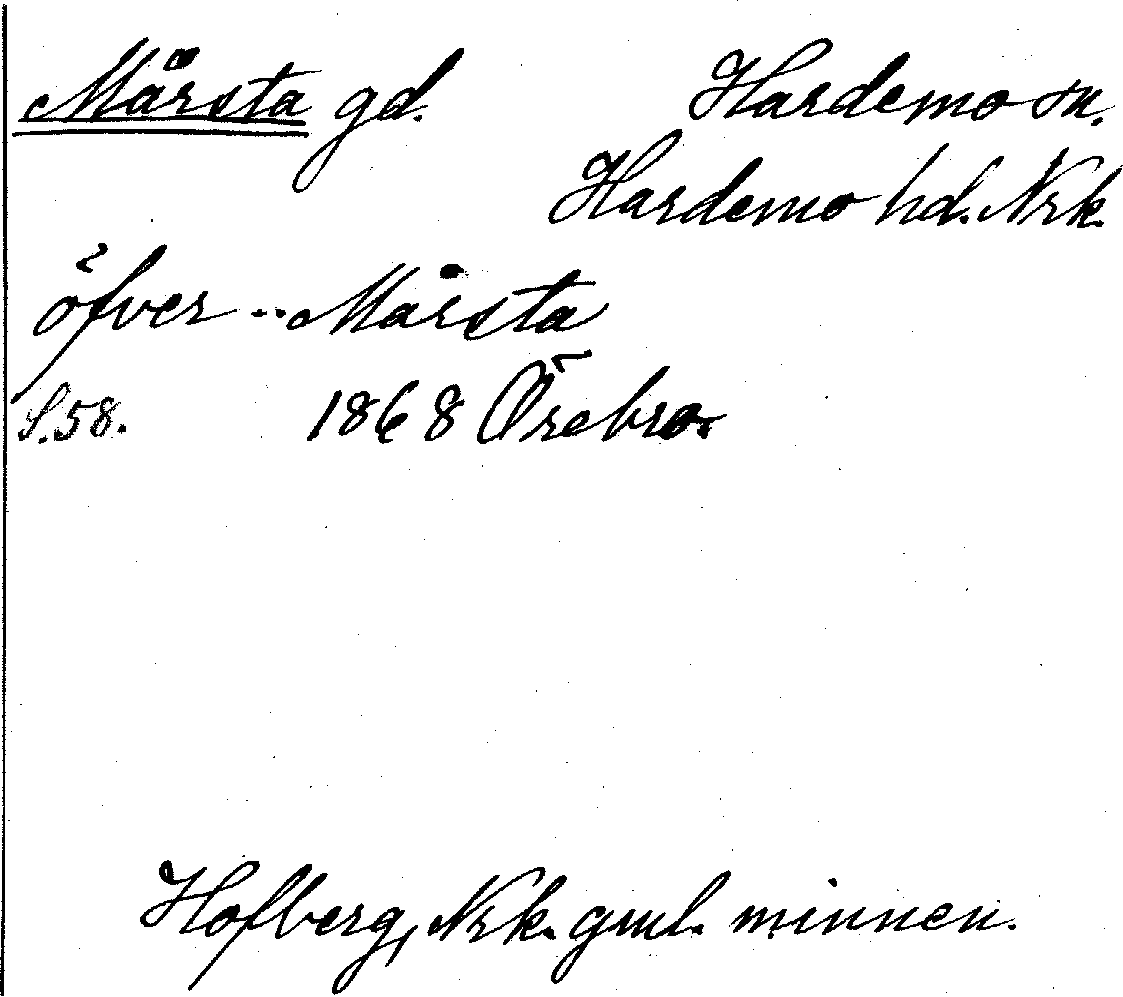 Mårsta gd. Hardemo sn.
Hardemo hd. Nrk.
öfver-Mårsta
S. 58. 1868 Örebro.
Hofberg, Nrk. gml. minnen.